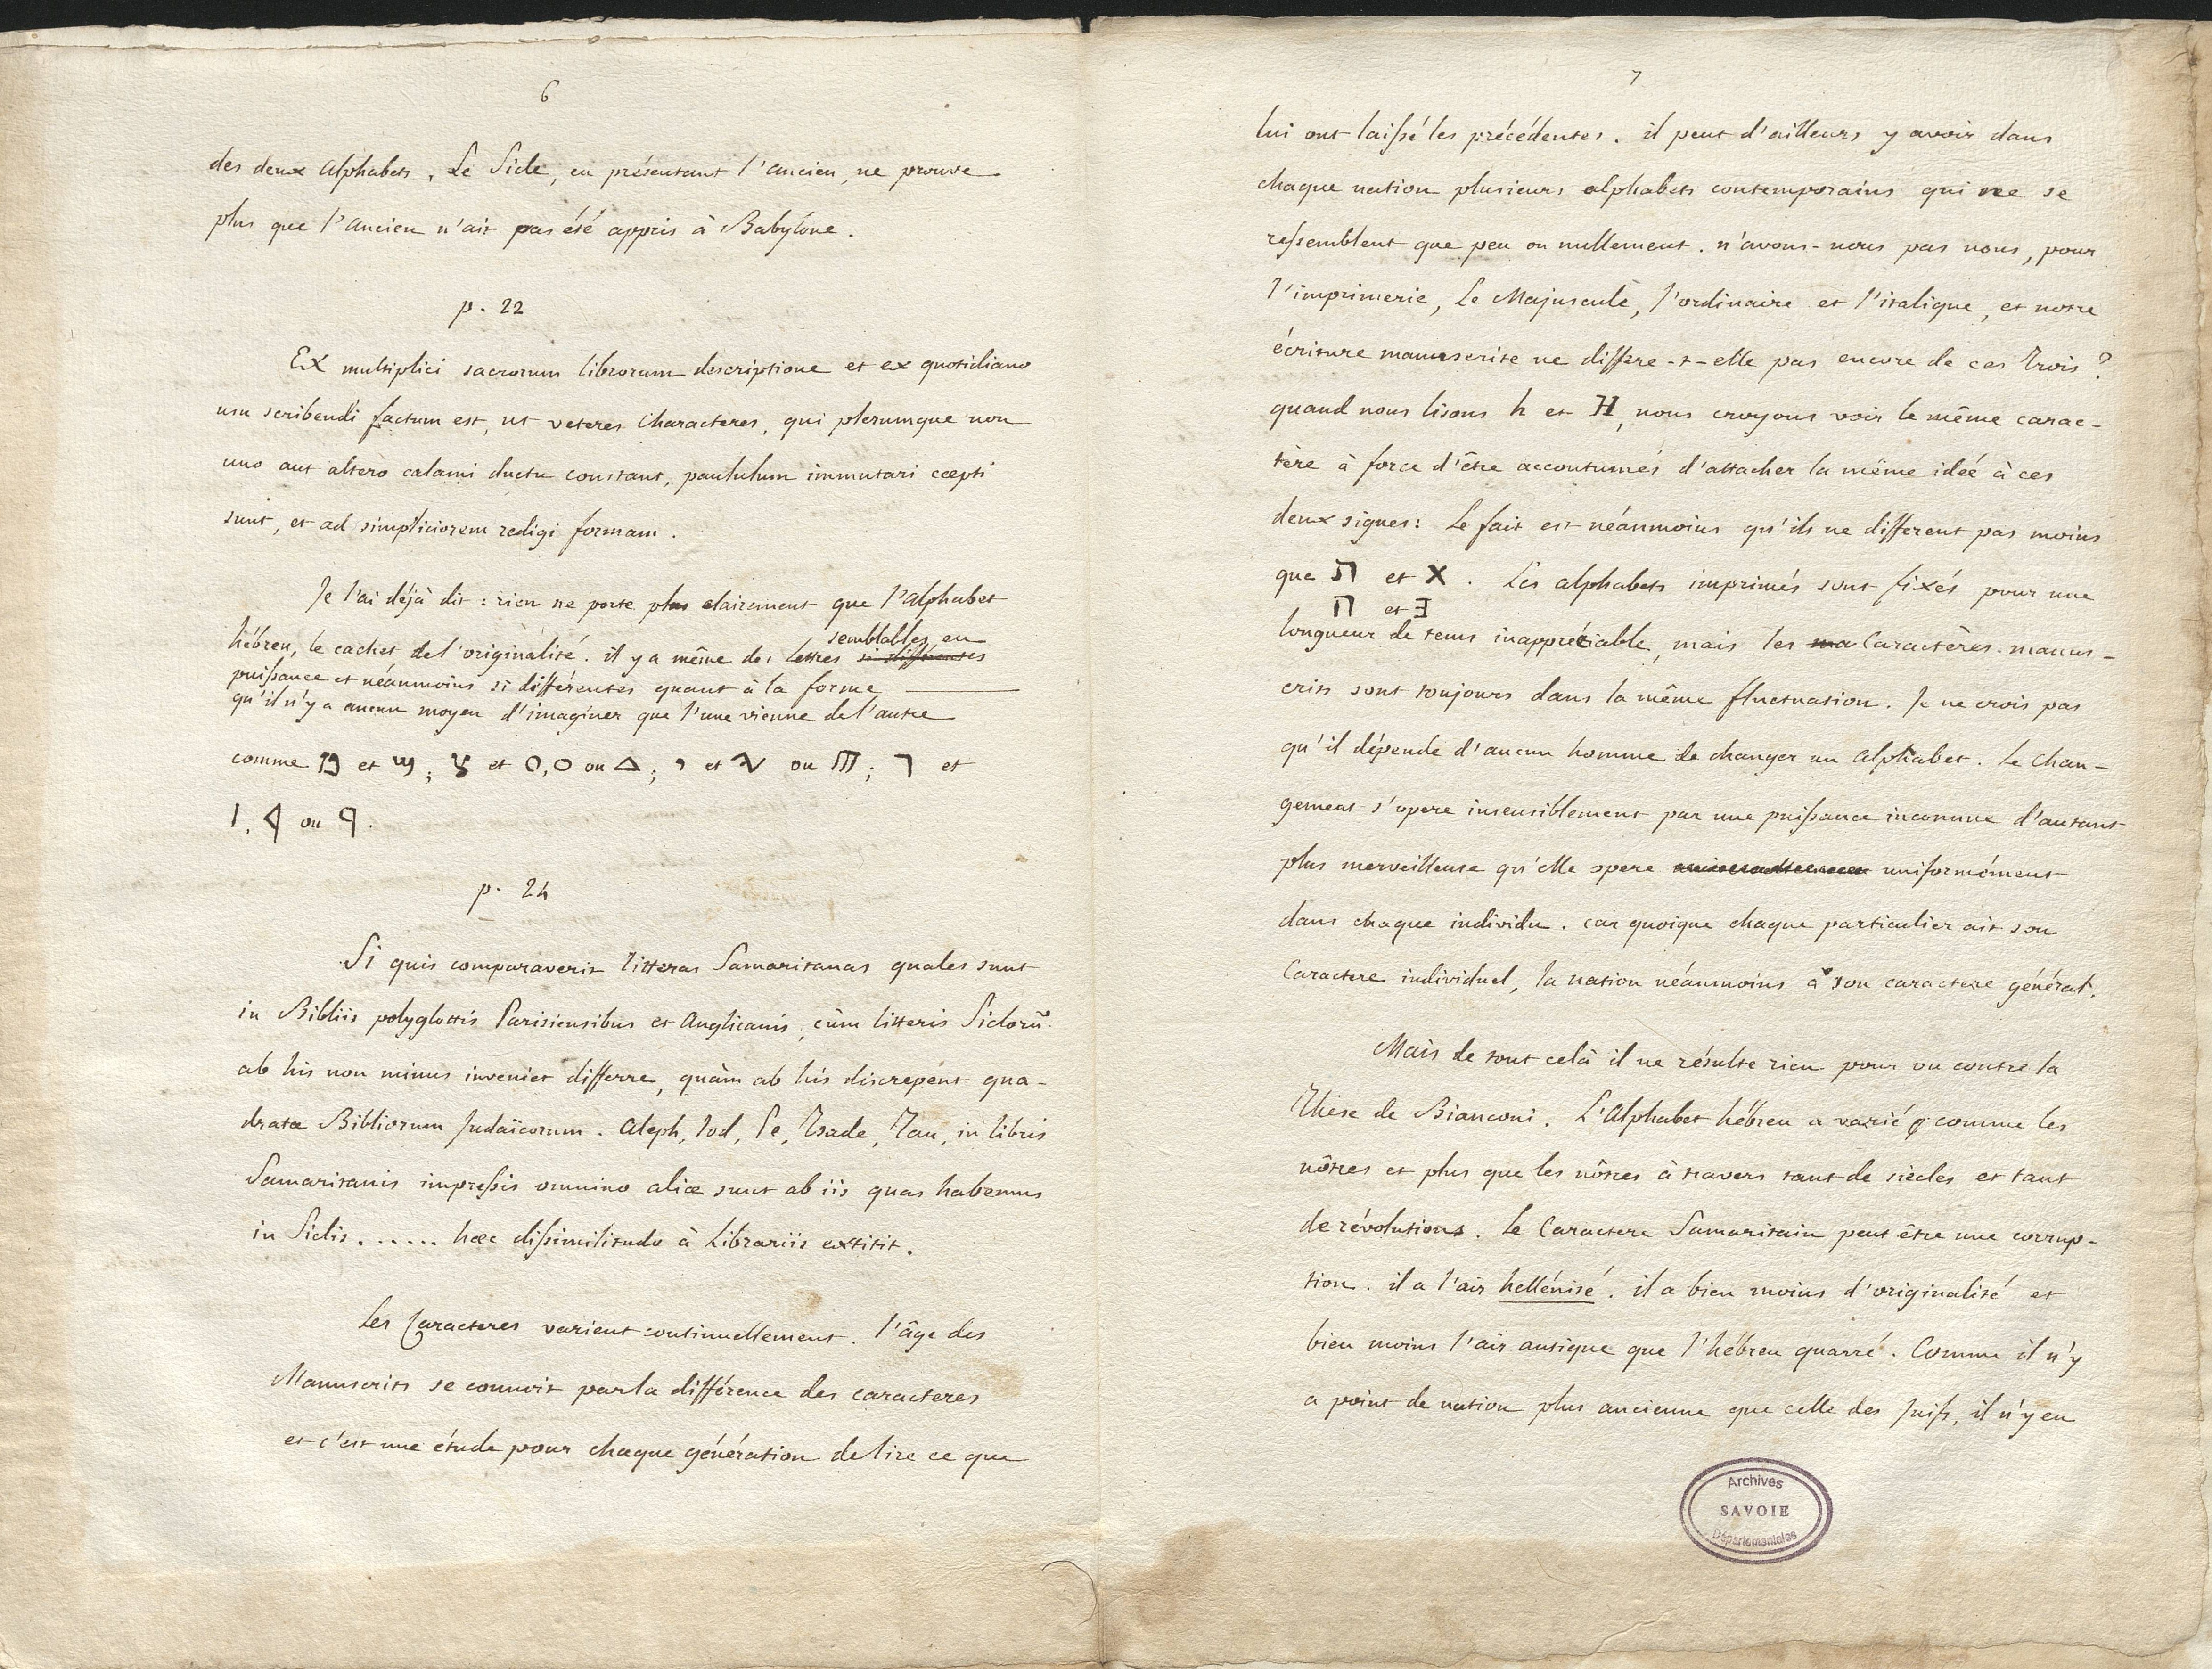 6
des deux alphabets. Le Sicle, en présentant l'ancien, ne prouve
plus que l'ancien n'ait pas été appris à Babylone.
p. 22
Ex multiplici sacrorum librorum descriptione et ex quotidiano
usu scribendi factum est, ut veteres characteres, qui plerumque non
uno aut altero calami ductu constant, paululum immutari cœpti
sunt, et ad simpliciorem redigi formam.
Je l'ai déjà dit : rien ne porte plus clairement que l'alphabet
hébreu, le cachet de l'originalité. il y a même des lettres si différentes semblables en
puissance et néanmoins si différentes quant à la forme
qu'il n'y a aucun moyen d'imaginer que l'une vienne de l'autre
comme et ; et O, O ou Δ ; et ou ; ㄱ et
ou .
p. 24
Si quis comparaverit litteras Samaritanas quales sunt
in Bibliis polyglottis Parisiensibus et Anglicanis, cùm litteris Siclorũ
ab his non minus inveniet differre, quàm ab his discrepent qua-
dratæ Bibliorum Judaïcorum. Aleph, Iod, Pe, Tsade, Tau, in libris
Samaritanis impressis omnino aliæ sunt ab iis quas habemus
in Siclis...... hæc dissimilitudo à Librariis extitit.
Les Caracteres varient continuellement. l'âge des
Manuscrits se connoit par la différence des caracteres
et c'est une étude pour chaque génération de lire ce que
7
lui ont laissé les précédentes. il peut d'ailleurs y avoir dans
chaque nation plusieurs alphabets contemporains qui ne se
ressemblent que peu ou nullement. n'avons-nous pas nous, pour
l'imprimerie, Le Majuscule, l'ordinaire et l'italique, et notre
écriture manuscrite ne differe-t-elle pas encore de ces trois ?
quand nous lisons h et H, nous croyons voir le même carac-
tère à force d'être accoutumés d'attacher la même idée à ces
deux signes : Le fait est néanmoins qu'ils ne different pas moins
que ת et X. Les alphabets imprimés sont fixés pour une
ח et Ǝ
longueur de tems inappréciable, mais les ma Caractères manus-
crits sont toujours dans la même fluctuation. Je ne crois pas
qu'il dépende d'aucun homme de changer un alphabet. Le chan-
gement s'opere insensiblement par une puissance inconnue d'autant
plus merveilleuse qu'elle opere uniformément
dans chaque individu. car quoique chaque particulier ait son
Caractere individuel, la nation néanmoins a son caractere général.
Mais de tout celà il ne résulte rien pour ou contre la
Thèse de Bianconi. L'Alphabet hébreu a varié comme les
nôtres et plus que les nôtres à travers tant de siècles et tant
de révolutions. Le Caractere Samaritain peut être une corrup-
tion. il a l'air hellénisé. il a bien moins d'originalité et
bien moins l'air antique que l'hébreu quarré. Comme il n'y
a point de nation plus ancienne que celle des Juifs, il n'y en
Archives
SAVOIE
Départementales